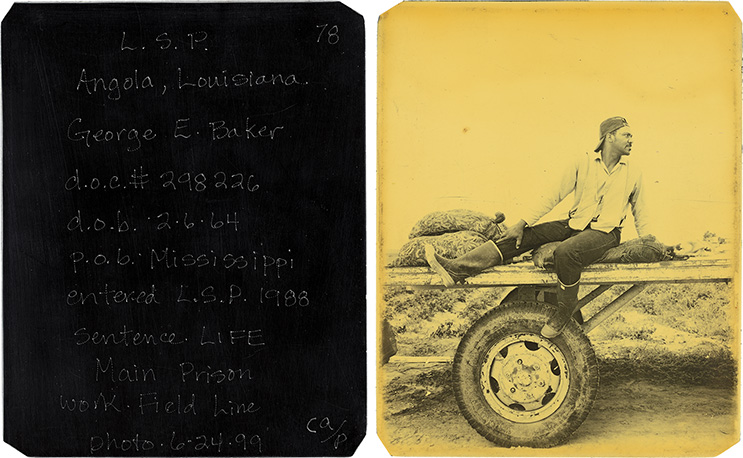 L.S.P. 78
Angola, Louisiana.
George E. Baker
d.o.c.# 298226
d.o.b. 2.6.64
p.o.b. Mississippi
entered L.S.P. 1988
sentence. LIFE
Main Prison
work. Field Line
photo. 6.24.99
ca/p